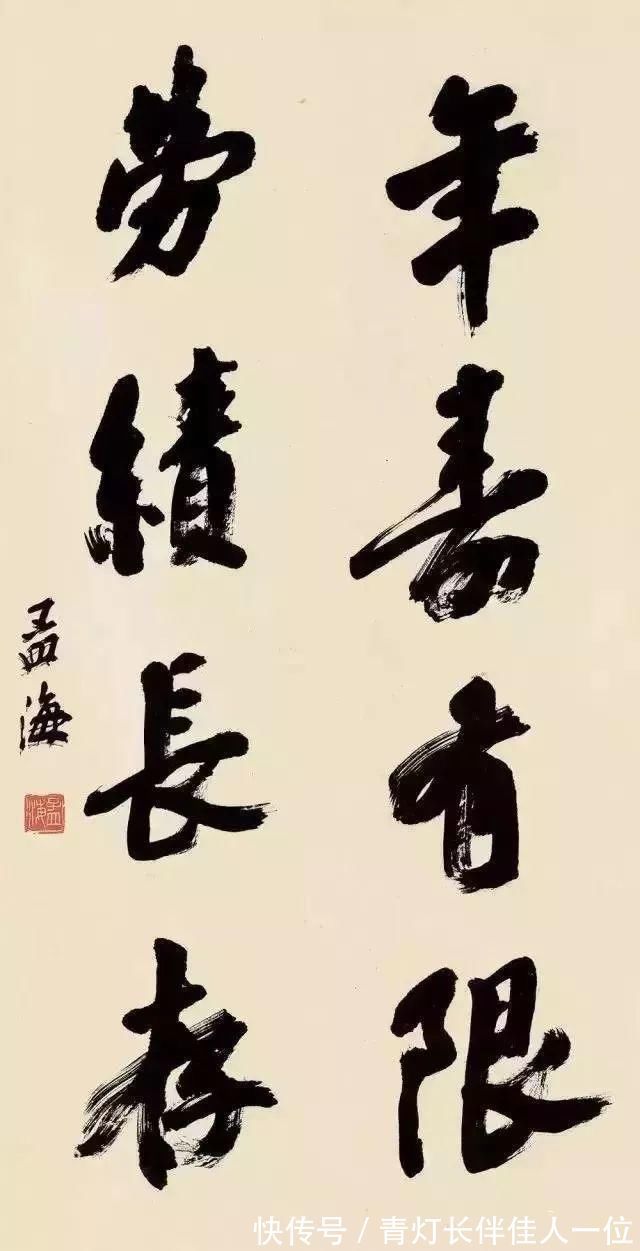 年寿有限
劳績長存
孟海
孟海
快传号/青灯长伴佳人一位